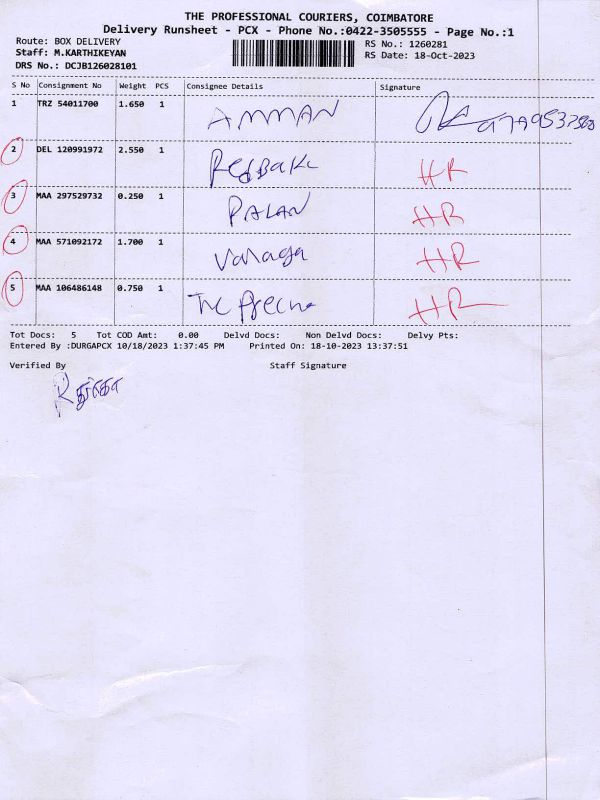 THE PROFESSIONAL COURIERS, COIMBATORE
Delivery Runsheet - PCX - Phone No.:0422-3505555 - Page No.:1
Route: BOX DELIVERY RS No.: 1260281
Staff: M.KARTHIKEYAN RS Date: 18-Oct-2023
DRS No.: DCJB126028101
S No Consignment No Weight PCS Consignee Details Signature
1 TRZ 54011700 1.650 1 AMMAN
2 DEL 120991972 2.550 1 HR
3 MAA 297529732 0.250 1 PALAN HR
4 MAA 571092172 1.700 1 HR
5 MAA 106486148 0.750 1 HR
Tot Docs: 5 Tot COD Amt: 0.00 Delvd Docs: Non Delvd Docs: Delvy Pts:
Entered By :DURGAPCX 10/18/2023 1:37:45 PM Printed On: 18-10-2023 13:37:51
Verified By Staff Signature